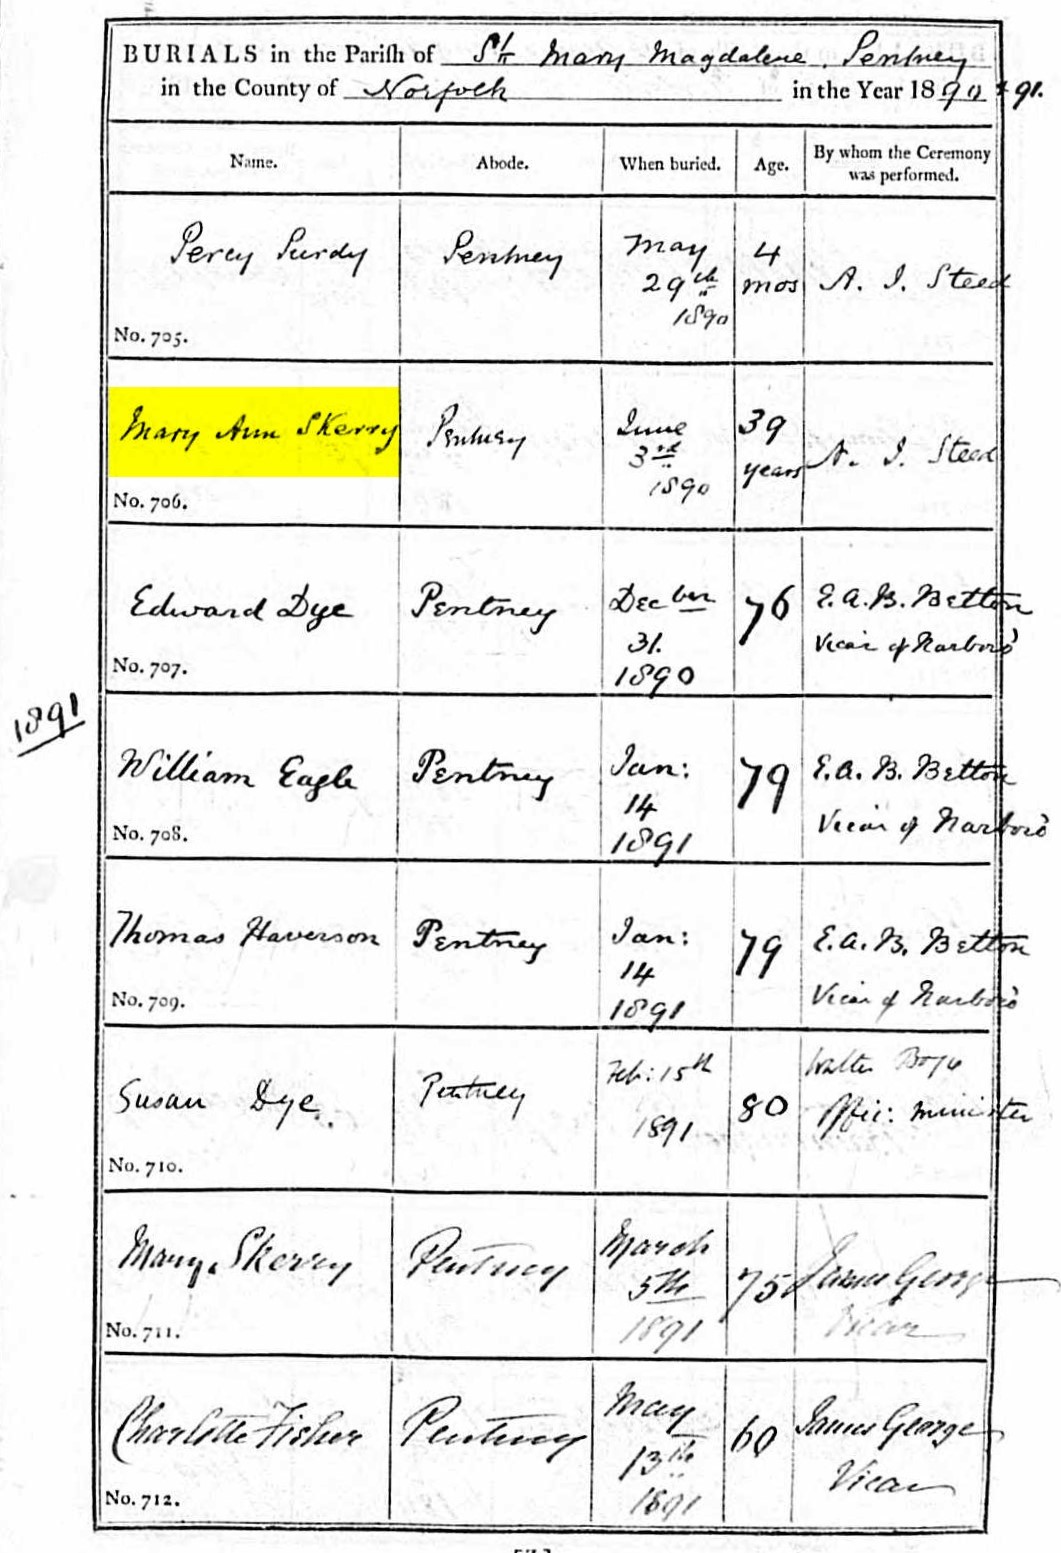 BURIALS in the Parish of St Mary Magdalene Pentney
in the County of Norfolk in the Year 1890 & 91.
Name. Abode. When buried. Age. By whom the Ceremony was performed.
Percy Purdy Pentney May 29th 1890 4 mos A. J. Steed
No. 705.
Mary Ann Skerry Pentney June 3rd 1890 39 years A. J. Steed
No. 706.
Edward Dye Pentney Decber 31. 1890 76 E. A. B. Betton Vicar of Narboro'
No. 707.
1891
William Eagle Pentney Jan: 14 1891 79 E. A. B. Betton Vicar of Narboro'
No. 708.
Thomas Haverson Pentney Jan: 14 1891 79 E. A. B. Betton Vicar of Narboro'
No. 709.
Susan Dye Pentney Feb: 15th 1891 80 Walter Offic: minister
No. 710.
Mary Skerry Pentney March 5th 1891 75 James George Vicar
No. 711.
Charlotte Fisher Pentney May 13th 1891 60 James George Vicar
No. 712.